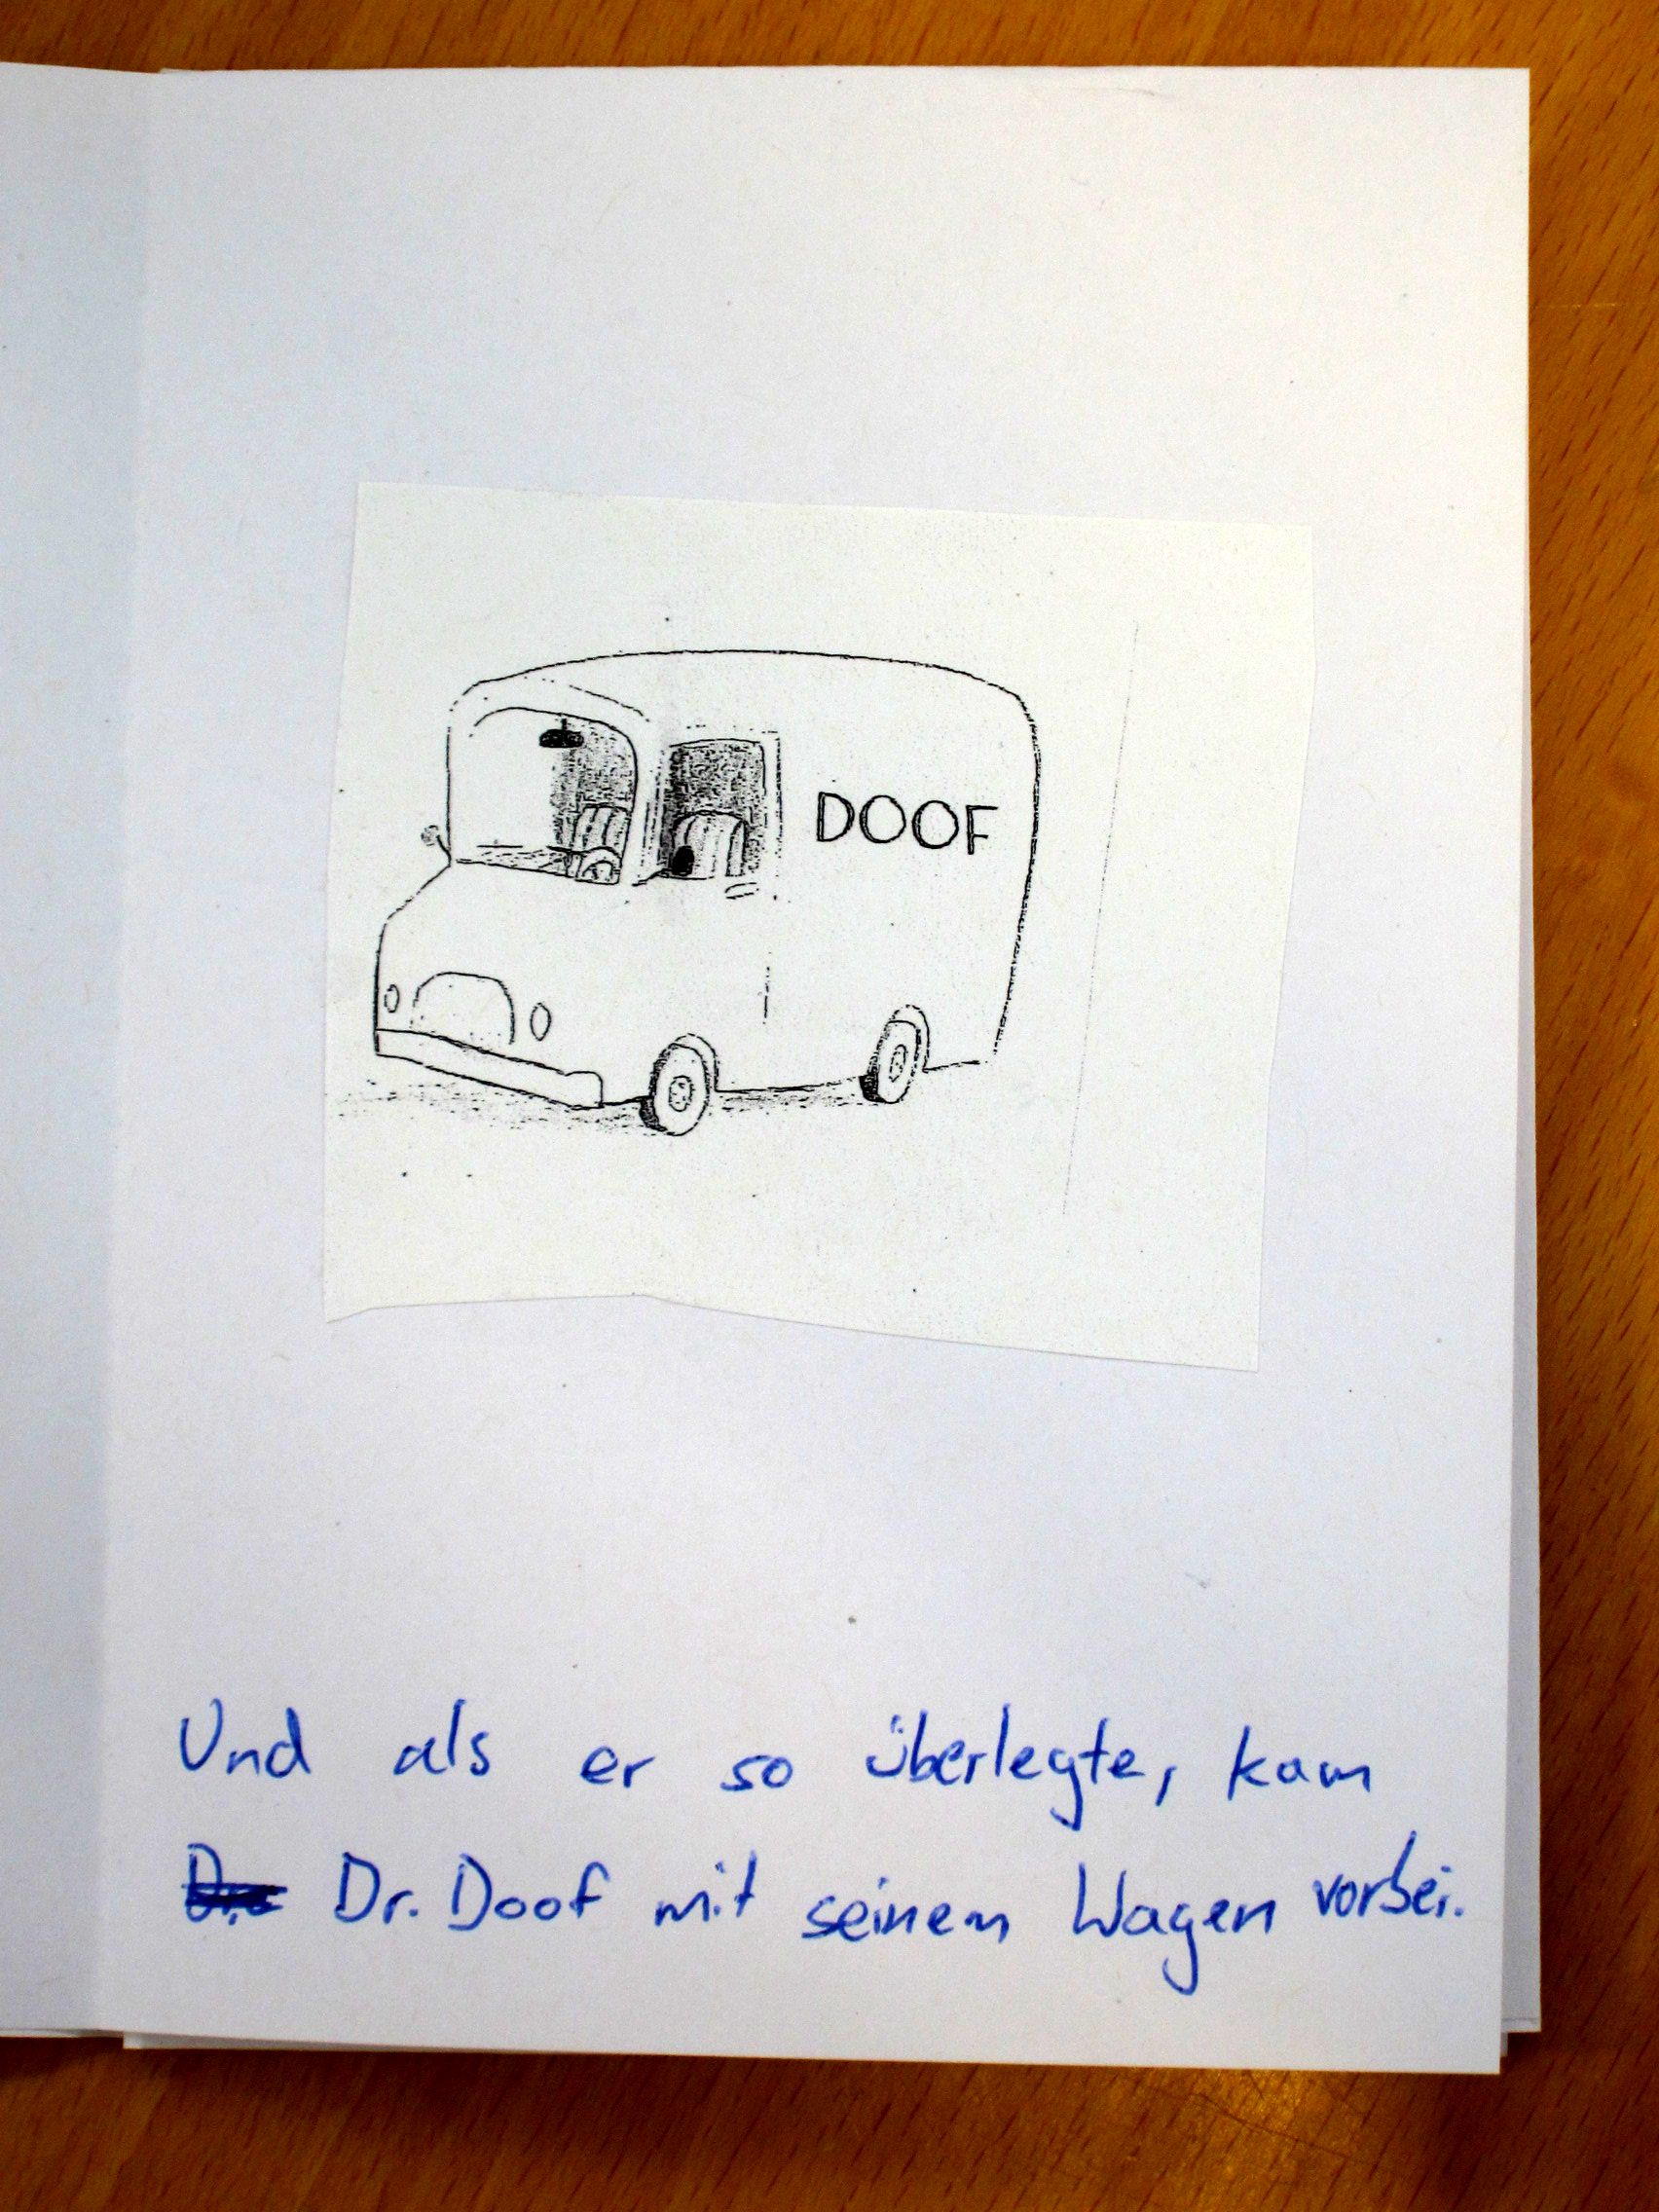 DOOF
Und als er so überlegte, kam
Dr. Doof mit seinem Wagen vorbei.